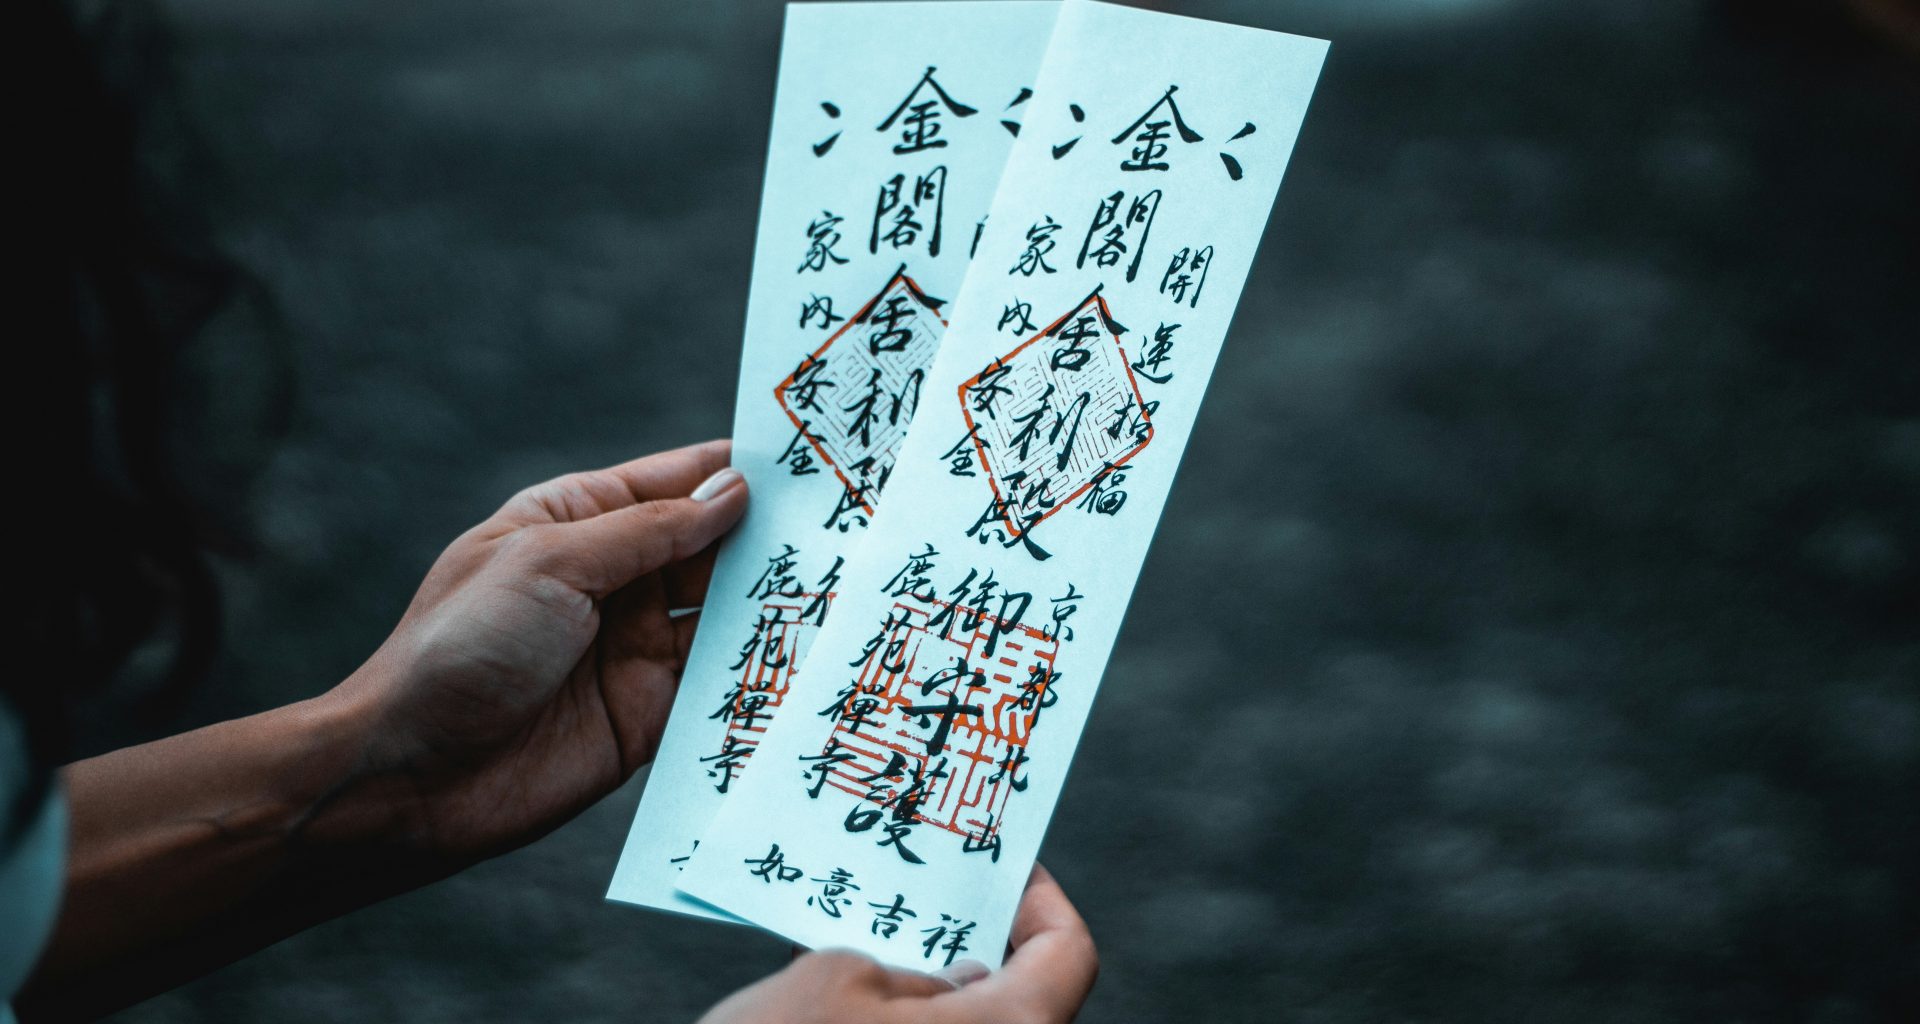 金閣舍利殿御守護
開運招福
京都北山
家内安全
鹿苑禅寺
如意吉祥
金閣舍利殿
家内安全
鹿苑禅寺